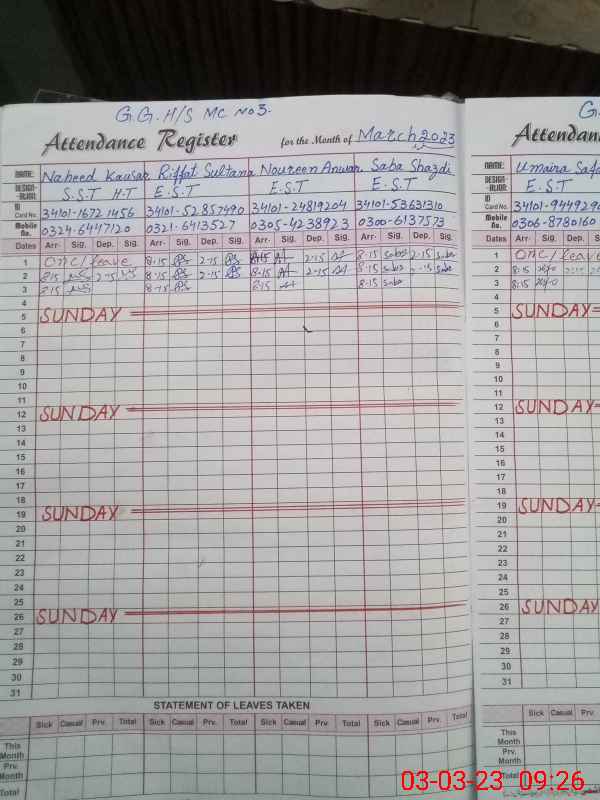 G.G.H/S MC No 3.
Attendance Register for the Month of March 2023
NAME: Naheed Kausar Riffat Sultana Noureen Anwar Saba Shazdi
DESIGN-ALIGN: S.S.T H.T E.S.T E.S.T E.S.T
ID Card No. 34101-1672 1456 34101-52857490 34101-24819204 34101-53631310
Mobile No. 0324-6447120 0321-6413527 0305-4238923 0300-6137573
Dates Arr- Sig. Dep. Sig. Arr- Sig. Dep. Sig. Arr- Sig. Dep. Sig. Arr- Sig. Dep. Sig.
1 ONC/leave 8-15 2-15 8-15 2-15 8-15 Saba 2-15 Saba
2 8:15 2-15 8-15 2-15 8-15 2-15 8-15 Saba 2-15 Saba
3 8:15 8-15 8:15 8-15 Saba
4
5 SUNDAY
6
7
8
9
10
11
12 SUNDAY
13
14
15
16
17
18
19 SUNDAY
20
21
22
23
24
25
26 SUNDAY
27
28
29
30
31
STATEMENT OF LEAVES TAKEN
Sick Casual Prv. Total Sick Casual Prv. Total Sick Casual Prv. Total Sick Casual Prv. Total
This Month
Prv. Month
Total
G.
Attendan
NAME: Umaira Safd
DESIGN-ALIGN: E.S.T
ID Card No. 34101-9449296
Mobile No. 0306-8780160
Dates Arr- Sig. Dep.
1 ONC/leave
2 8:15
3 8:15
4
5 SUNDAY
6
7
8
9
10
11
12 SUNDAY
13
14
15
16
17
18
19 SUNDAY
20
21
22
23
24
25
26 SUNDAY
27
28
29
30
31
Sick Casual Prv.
This Month
Prv. Month
Total
03-03-23 09:26